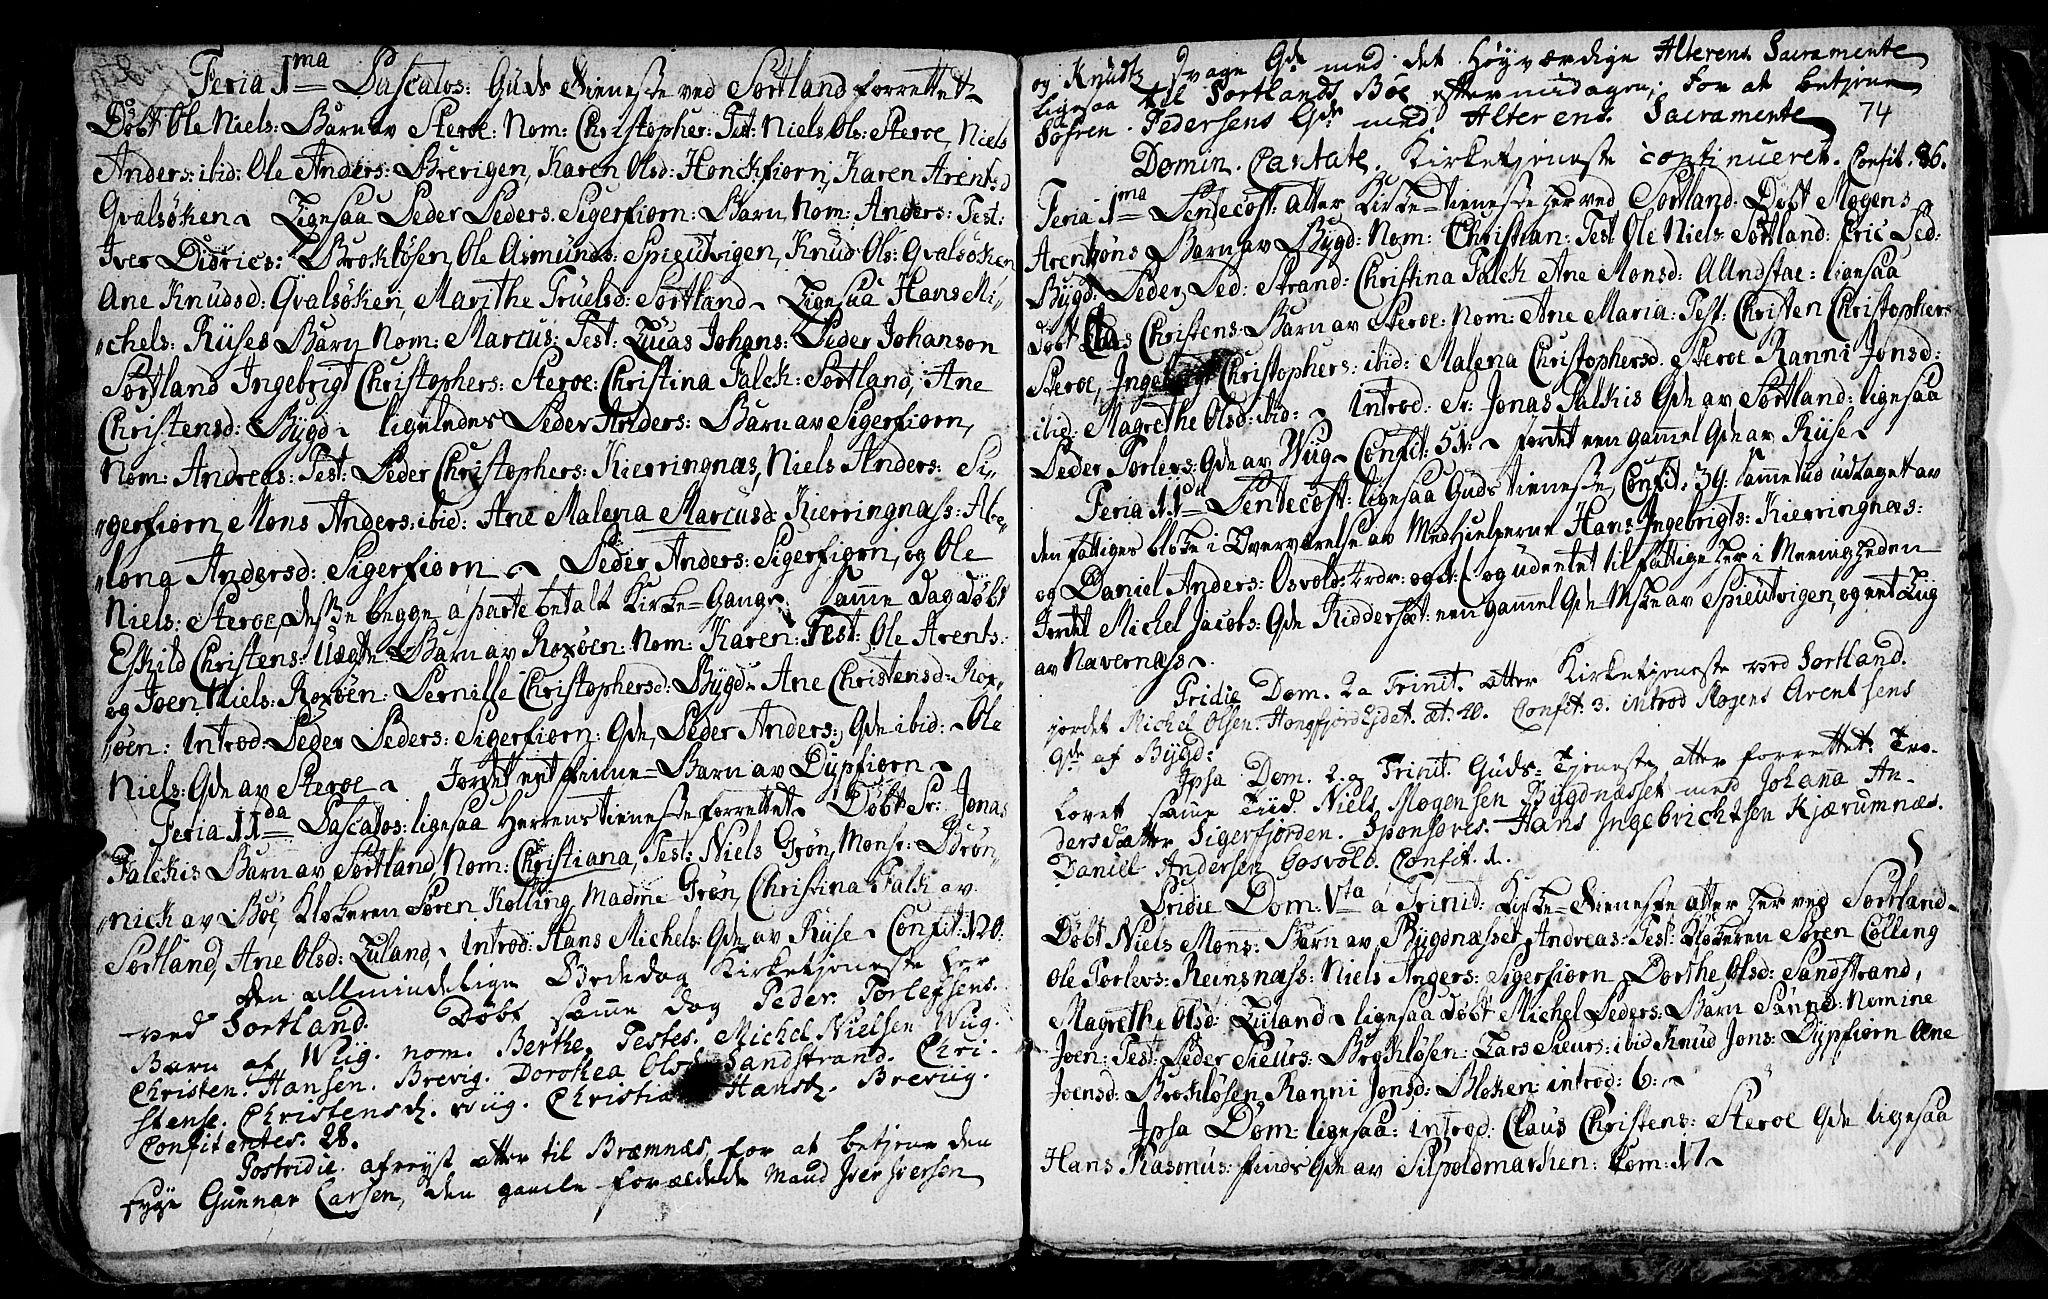 Feria 1ma Pascatos: Guds Tieneste ved Sortland forrettet
Døbt Ole Niels: Barn av Steroe: Nom: Christopher: Test: Niels Ols: Steroe, Niels
Anders: ibid: Ole Anders: Brevigen, Karen Olsd: Honckfiorn, Karen Arentsd
Qvalsøken Ligesaa Peder Peders: Sigerfiorn: Barn, Nom: Anders: Test:
Iver Didrics: Brokløsen, Ole Asmunds: Spieutvigen, Knud Ols: Qvalsøken
Ane Knudsd: Qvalsøken, Marithe Truelsd: Sortland Ligesaa Hans Mi„
„chels: Riises Barn Nom: Marcus: Test: Lucas Johans: Peder Johanson
Sortland Ingebrigt Christophers: Steroe: Christina Falck: Sortland, Ane
Christensd: Bygd ligeledes Peder Anders: Barn av Sigerfiorn,
Nom: Andreas: Test: Peder Christophers: Kierringnæs, Niels Anders: Si„
„gerfiorn, Mons Anders: ibid: Ane Malena Marcusd: Kierringnæss: Abe„
„lona Andersd: Sigerfiorn Peder Anders: Sigerfiorn, og Ole
Niels: Steroe, desse begge a parte betalt Kirke=Gang Samme Dag Døbt
Eskild Christens: Uægte Barn av Roxøen: Nom: Karen: Test: Ole Arents:
og Joen Niels: Roxøen: Pernille Christophersd: Bygd Ane Christensd: Rox„
„øen: Introd: Peder Peders: Sigerfiorn: Qde, Peder Anders: Qde ibid: Ole
Niels: Qde av Steroe Jordet ent finne=Barn av Dypfiorn
Feria 11da Pascatos: ligesaa Herrens tieneste forrettet Døbt Sr: Jonas
Falckis Barn av Sortland, Nom: Christiana, Test: Niels Grøn, Monsr:
nick av Bøe, Klokeren Søren Kølling, Madme Grøn, Christina Falck av
Sortland, Ane Olsd: Lyland, Introd: Hans Michels: Qde av Riise Confit: 120:
Den allmindelige Bededag Kirketjeneste her
ved Sortland. Døbt samme dag Peder Torlefsens
Barn af Wiig. nom. Berthe. Testes. Michel Nielsen Wug.
Christen Hansen. Brevig. Dorothea Ols Sandstrand. Chri.
stense. Christensd. Wiig. Christia Hansd. Breviig.
Confitentes. 28.
Postridie. afreyst atter til Bræmnæs, for at betjene den
syge Gunnar Larsen, den gamle forældede Mand Iver Iversen
og Knudtz svage Qde med det Høyværdige Alterens Sacramente
ligesaa til Sortlands Bøe eftermidagen; for at betjene
Søfren Pedersens Qde med Alterens Sacramente 74
Domin. Cantate. Kirketjeneste continueret. Confit. 86.
Feria 1ma Pentecost: atter Kirke=tieneste her ved Sortland: Døbt Mogens
Arentsøns Barn av Bygd: Nom: Christian: Test Ole Niels: Sortland: Eric Ped:
Bygd: Peder Ped: Strand: Christina Falck Ane Monsd: Allndstae: ligesaa
døbt Claus Christens: Barn av Steroe: Nom: Ane Maria: Test: Christen Christophers
Steroe, Christophers: ibid: Malena Christophersd: Steroe Ranni Jonsd:
ibid: Magrethe Olsd: ibid: Introd: Sr: Jonas Falckis Qde av Sortland: ligesaa
Peder Torlevs: Qde av Wiig Confit: 51: Jordet een gammel Qde av Riise
Feria 11da Pentecost: ligesaa Guds tieneste, Confit: 39: samme tid udtaget av
den fattiges blok i Overværelse av Medhielperne Hans Ingebrigts: Kierringnæs:
og Daniel Anders: Osvold: 4rdr: og udeelet til fattige her i Meenigheden
Jordet Michel Jacobs: Qde Riddersæt een gammel Qde Mske av Spieutvigen, og eet Liig
av Navernæss
Pridie Dom. 2a Trinit. atter Kirketjeneste ved Sortland.
jordet Michel Olsen. Hongfjordejdet. æt. 40. Confit. 3. introd Mogens Arentsens
Qde af Bygd:
Ipsa Dom. 2.a Trinit. Guds=Tjeneste atter forrettet. Tro-
lovet samme Tiid Niels Mogensen Bygdnæsset med Johanna An-
dersdatter Sigerfjorden. Sponsores. Hans Ingebrichtsen Kjærumnæs.
Daniel Andersen Gosvold. Confit. 1.
Pridie Dom: Vta á Trinit: Kirke=Tieneste atter her ved Sortland
Døbt Niels Mons: Barn av Bygdnæsset, Andreas: Test: Klokeren Søren Cølling
Ole Torlevs: Reinsnæss: Niels Anders: Sigerfiorn, Dorthe Olsd: Sandstrand,
Magrethe Olsd: Lyland ligesaa døbt Michel Peders: Barn Sannd: Nomine
Joen: Test: Peder Sieurs: Brokløsen: Lars Sieurs: ibid Knud Jons: Dypfiorn Ane
Joensd: Brokløsen, Ranni Jonsd: Bloken: introd: 6:
Ipsa Dom: ligesaa: introd: Claus Christens: Steroe Qde ligesaa
Hans Rasmus: finds Qde av Silpoldmarken: Com: 17